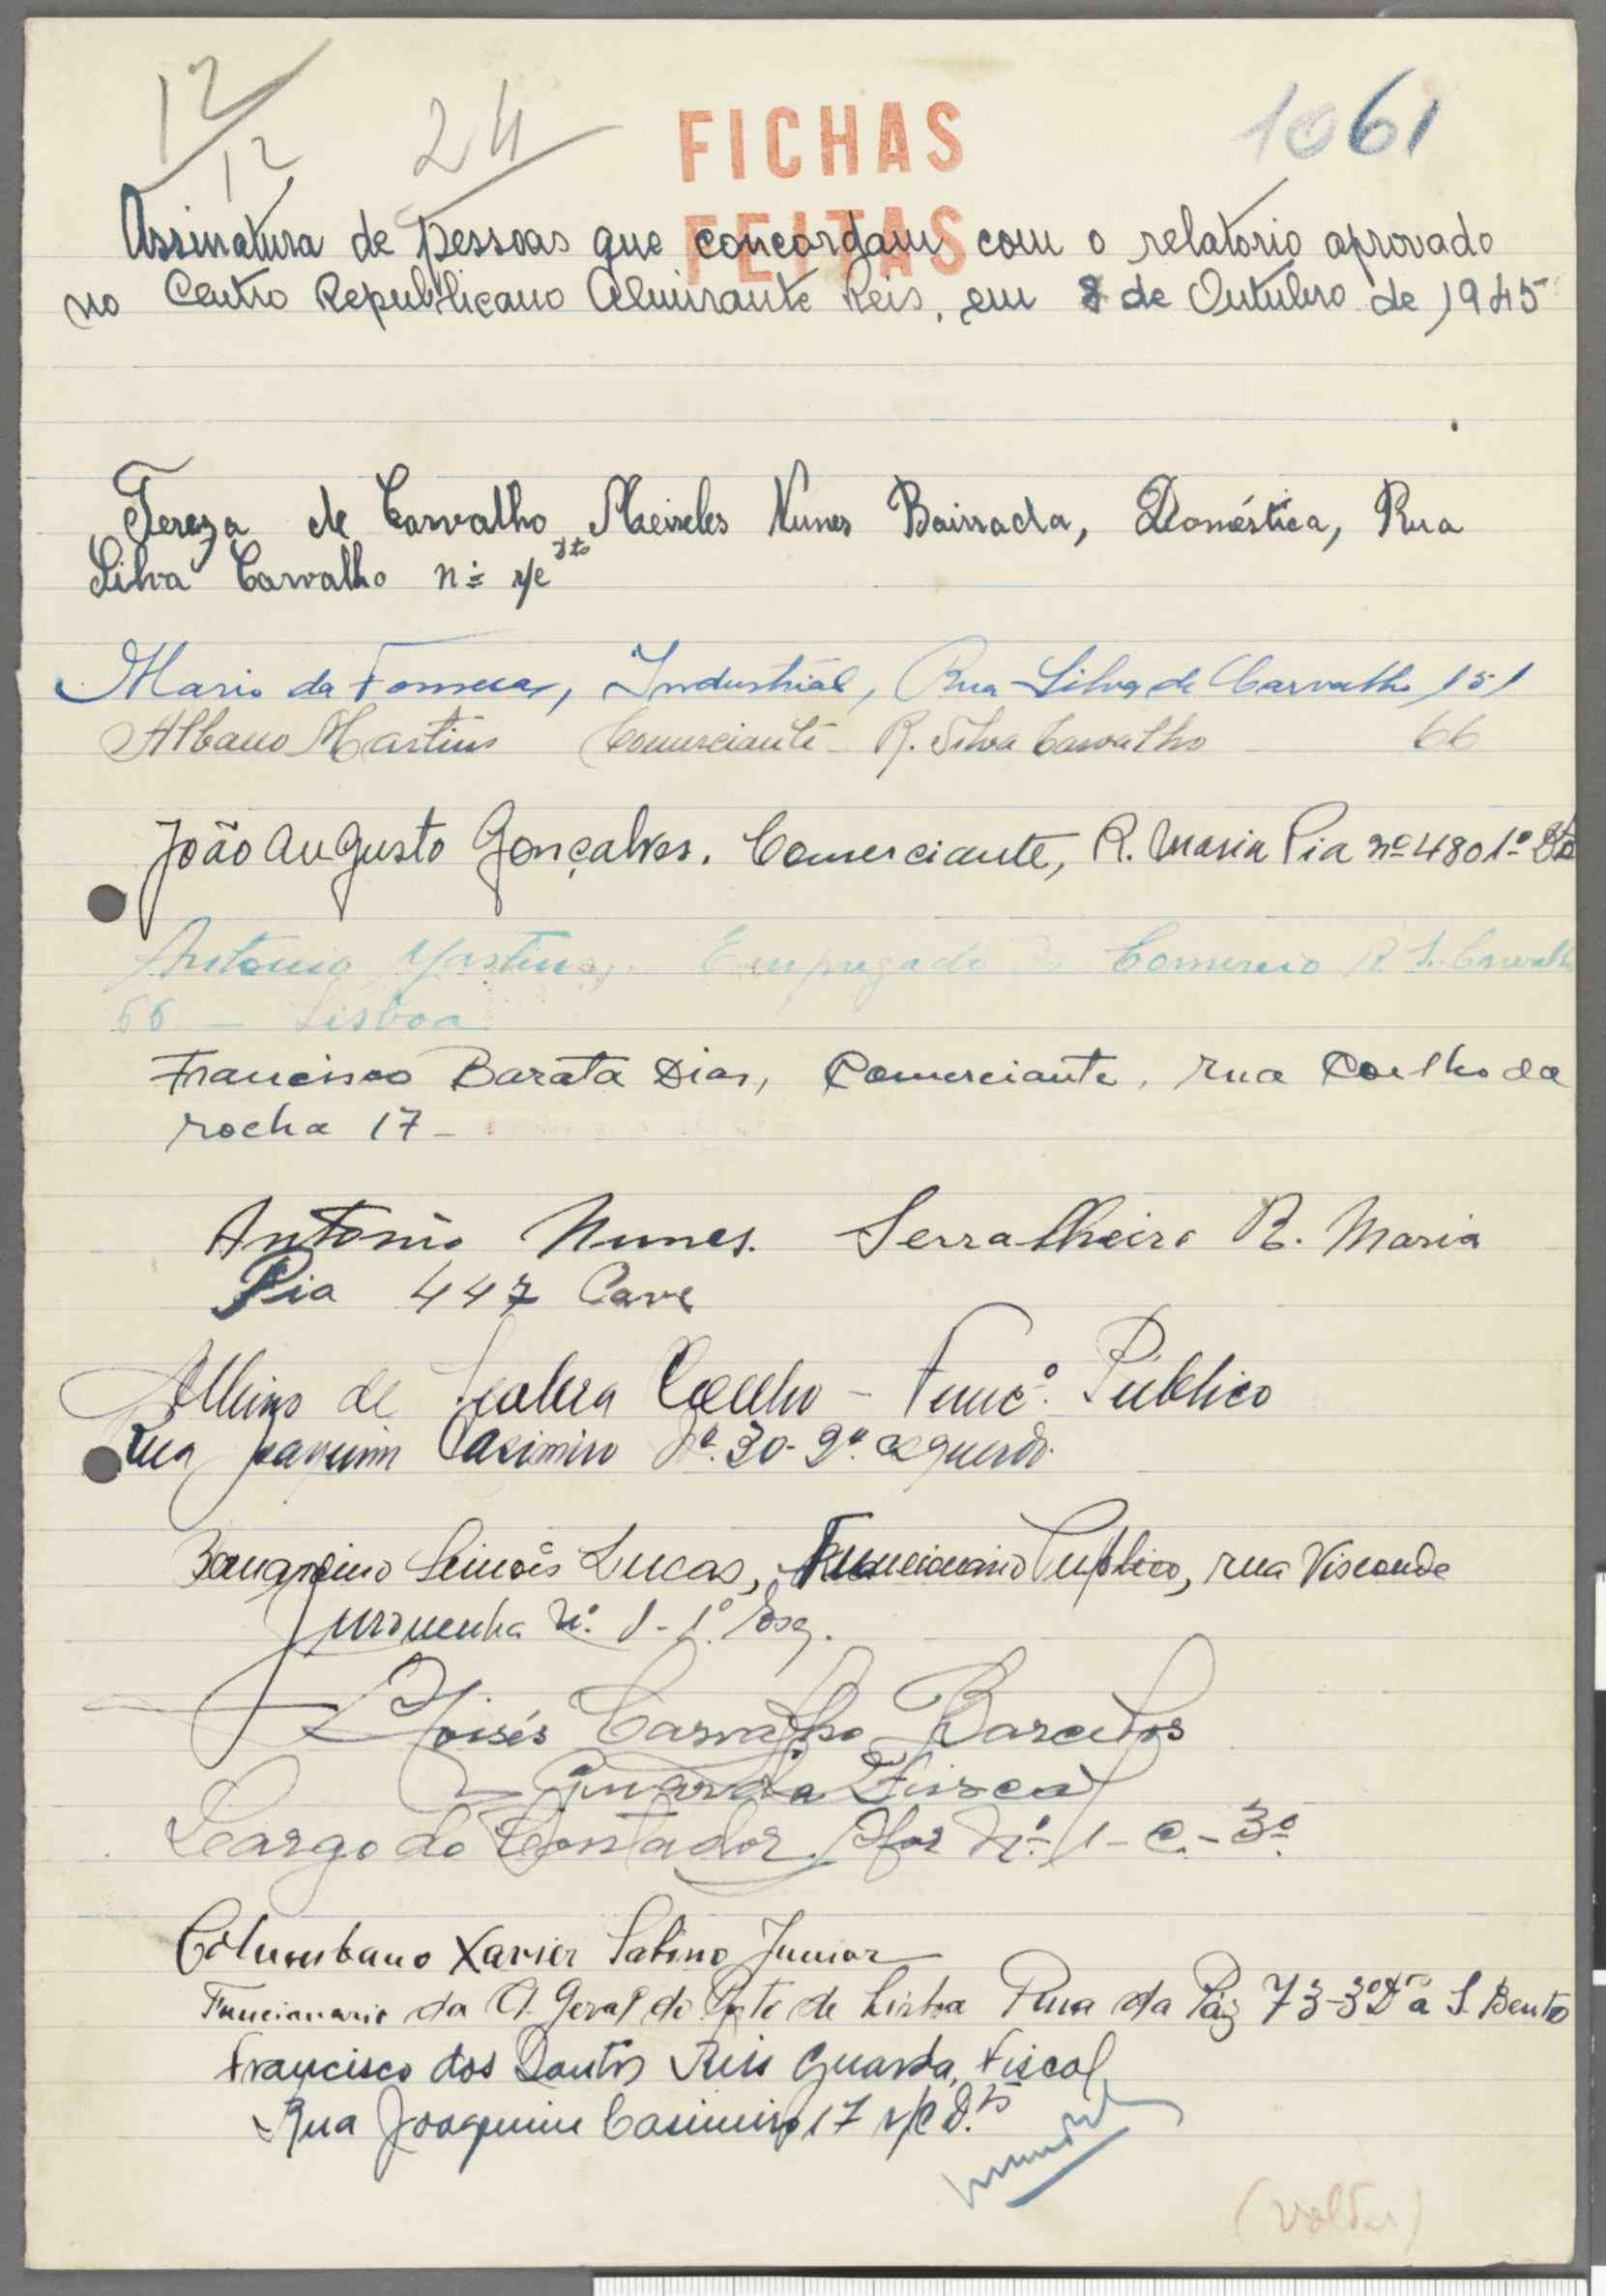 12/12
24
FICHAS
FEITAS
1061
Assinatura de pessoas que concordam com o relatorio aprovado
no Centro Republicano Almirante Reis, em 8 de Outubro de 1945
Tereza de Carvalho Meireles Nunes Bairrada, Doméstica, Rua
Silva Carvalho nº r/c dto
Mario da Fonseca, Industrial, Rua Silva de Carvalho 151
Albano Martins Comerciante R. Silva Carvalho 66
João Augusto Gonçalves. Comerciante, R. Maria Pia nº 480 1º Dto
Antonio Martins, Empregado Comercio R S. Carvalho
66 – Lisboa
Francisco Barata Dias, Comerciante, rua Coelho da
rocha 17 –
Antonio Nunes. Serralheiro R. Maria
Pia 447 Cave
Albino de Seabra Coelho – Funcº. Publico
Rua Joaquim Casimiro Nº. 30-2º. esquerdo
Bernardino Simões Lucas, Funcionario Publico, rua Visconde
Juromenha Nº. 1-1º. Esq.
Moisés Carvalho Barcelos
Guarda Fiscal
Largo do Contador Mor Nº. 1-C.-3º
Columbano Xavier Sabino Junior
Funcionario da A. Geral do Pto de Lisboa Rua da Páz 73-3º Dto a S. Bento
Francisco dos Santos Reis Guarda Fiscal
Rua Joaquim Casimiro 17 r/c D.to
(voltar)